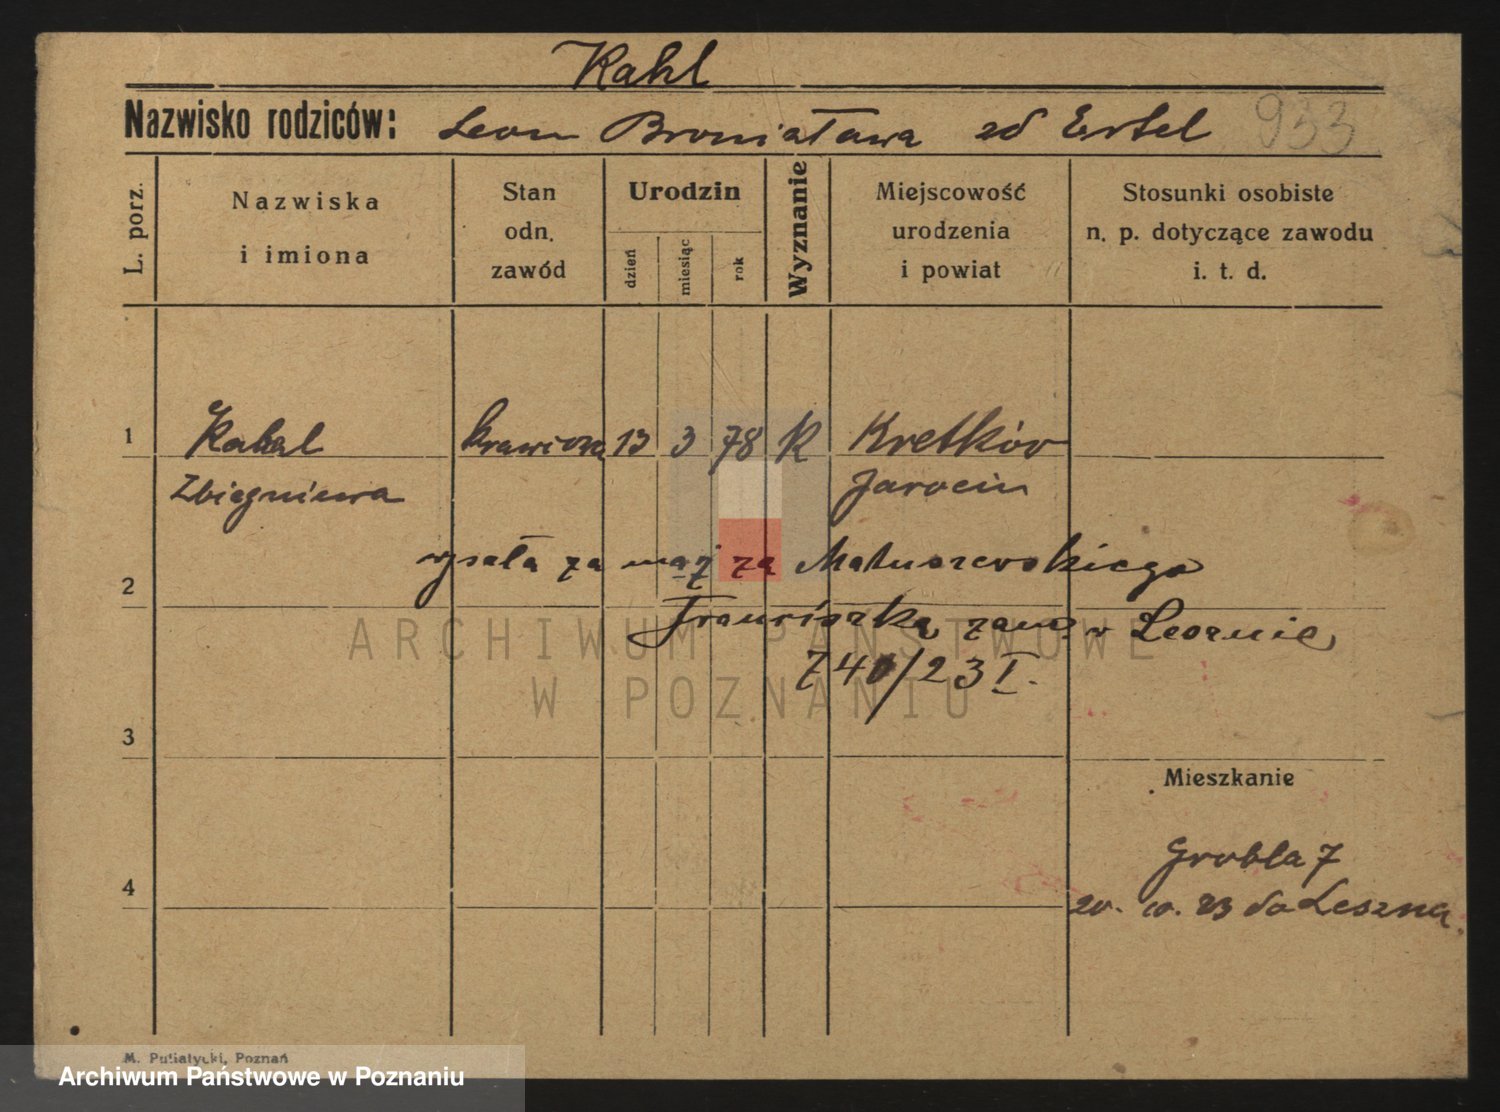 Kahl
Nazwisko rodziców: Leon Bronisława zd Ertel 933
L. porz.
Nazwiska i imiona
Stan odn. zawód
Urodzin
dzień miesiąc rok
Wyznanie
Miejscowość urodzenia i powiat
Stosunki osobiste n. p. dotyczące zawodu i. t. d.
1 Kahl krawcowa 13 3 78 K Kretków
Zbigniewa Jarocin
wyszła za mąż za Matuszewskiego
2
Franciszka, zam. w Lesznie
740/23 I.
ARCHIWUM PAŃSTWOWE
W POZNANIU
3
Mieszkanie
Grobla 7
4
20. 10. 23 do Leszna
M. Putiatycki, Poznań
Archiwum Państwowe w Poznaniu